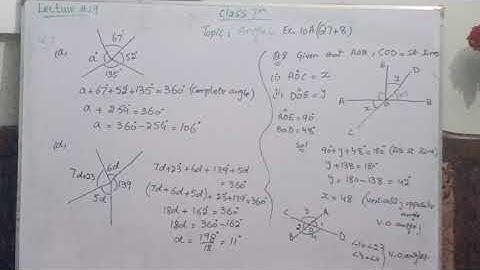 Lecture #19
Class 7th
Topic: Angles Ex. 10A (Q7+8)
Q.7
(a)
67°
a° 52°
135°
a+67+52+135=360° (complete angle)
a + 254=360°
a = 360-254=106°
(d)
7d+23 6d 139
5d
7d+23+6d+139+5d
=360°
(7d+6d+5d)+23+139=360
18d+162=360°
18d=360-162
d=198/18=11°
Q.8 Given that AOB, COD = St lines
(i) AÔC = x
(ii) DÔE = y
AÔE=90°
BÔD=48°
E
D
y
A
O
B
x
C
Sol
90+y+48=180° (AB St line)
y+138=180°
y=180-138=42°
x=48 (vertically opposite
angle
V.O angle)
C
A
B
D
∠1=∠2
∠3=∠4
V.O angles